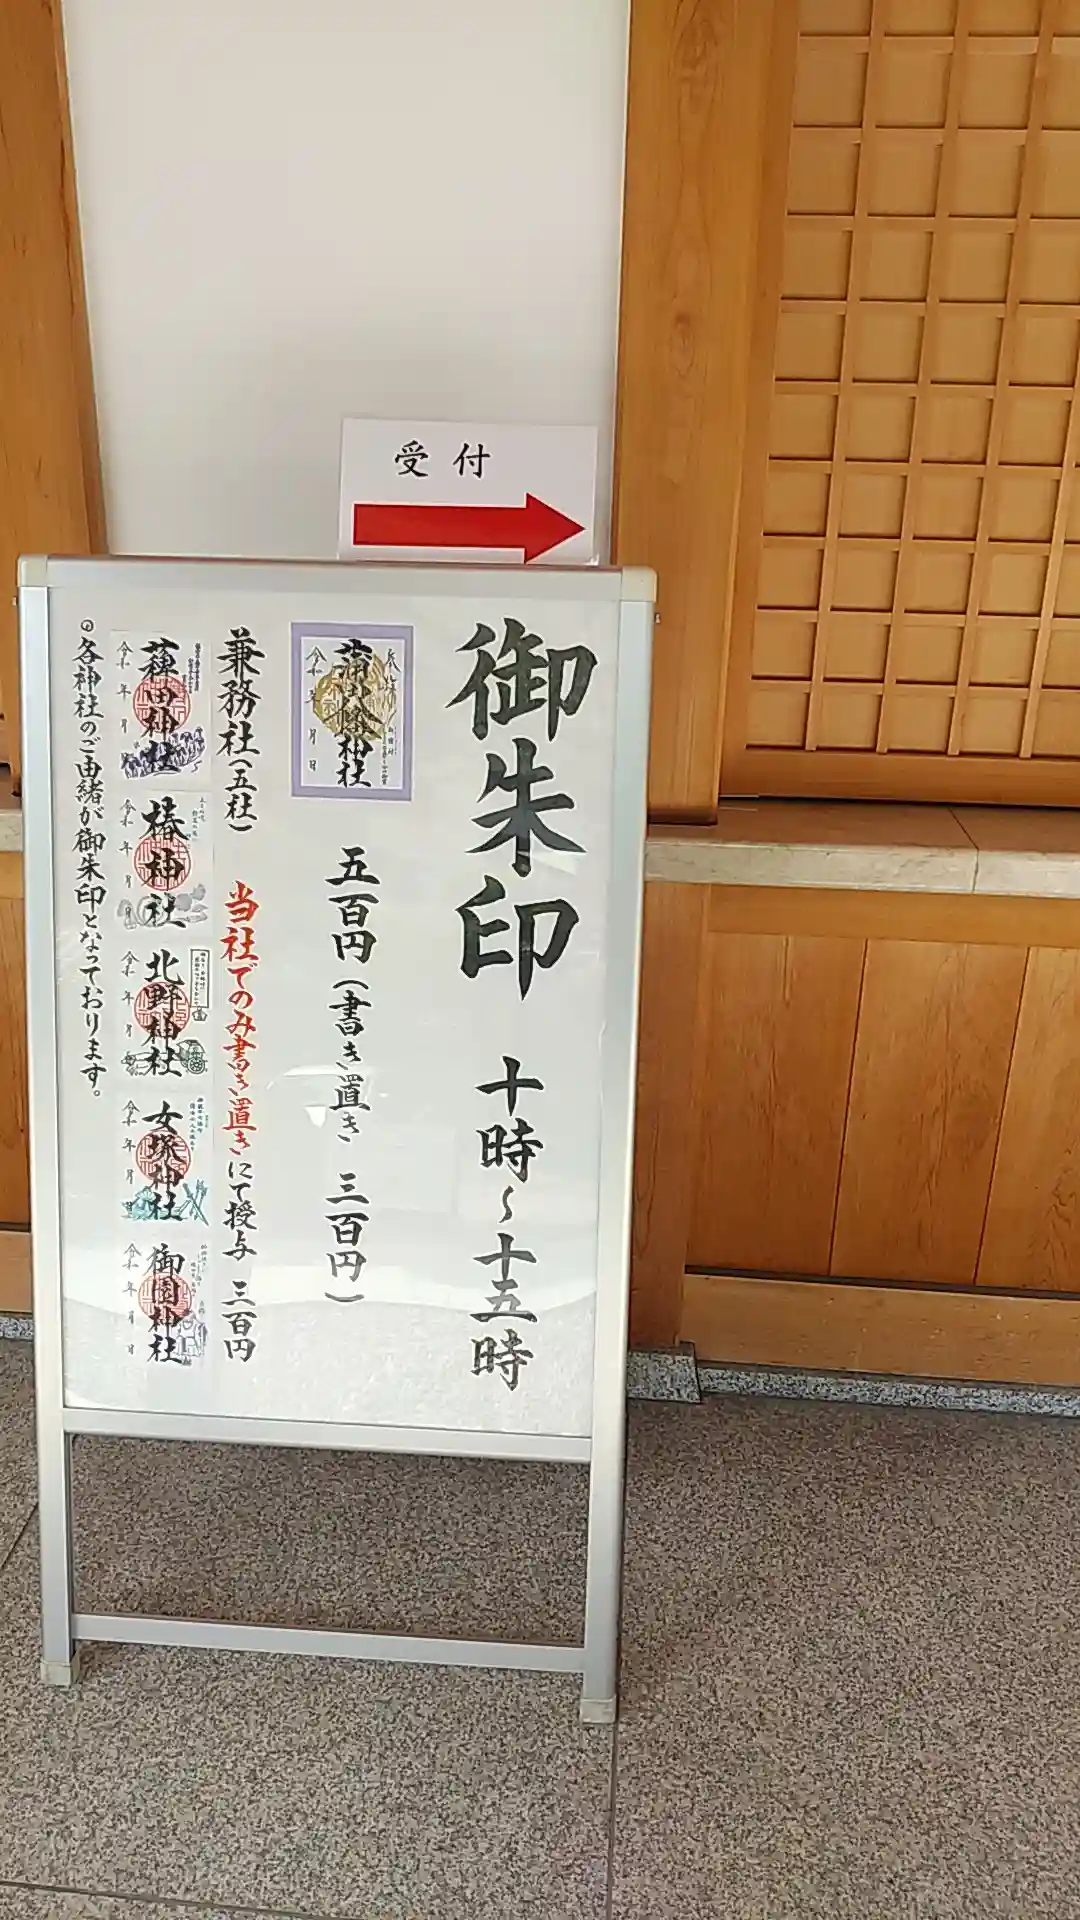 受付
御朱印 十時〜十五時
蒲田八幡神社
令和 年 月 日
五百円(書き置き 三百円)
兼務社(五社) 当社でのみ書き置きにて授与 三百円
薭田神社
令和 年 月
椿神社
令和 年 月 日
北野神社
令和 年 月 日
女塚神社
令和 年 月 日
御園神社
令和 年 月 日
◎各神社のご由緒が御朱印となっております。